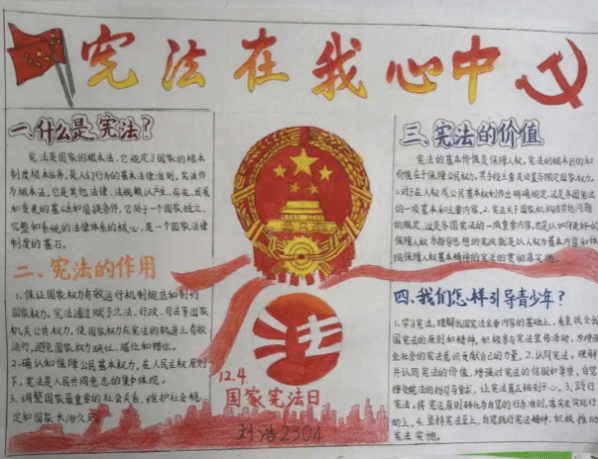 宪法在我心中
一.什么是宪法?
宪法是国家的根本法,它规定了国家的根本
制度根本任务,是人们行为的基本法律准则,宪法作
为根本法,它是其他法律、法规赖以产生、存在、发展
和变更的基础和前提条件,它处于一个国家独立、
完整和系统的法律体系的核心,是一个国家法律
制度的基石。
二、宪法的作用
1.保证国家权力有效运行机制规范和制约
国家权力,宪法通过赋予立法、行政、司法等国家
机关公共权力,使国家权力在宪法的轨道上有效
运行,避免国家权力缺位、越位和错位。
2.确认和保障公民基本权力,在人民主权原则
下,宪法是人民共同意志的集中体现。
3、调整国家最重要的社会关系,维护社会稳
定和国家长治久安
法
12.4
国家宪法日
刘浩2304
三、宪法的价值
宪法的基本价值是保障人权,宪法的根本目的和
价值在于保障公民权力,其手段主要是设置与限定国家权力。
的一项基本和主要内容,2.宪法关于国家机构及其他问题
的规定,这是各国宪法的一项重要内容,
保障人权为指导思想的宪政就是以人权为基本内容和体
现保障人权基本精神的宪法的贯彻落实。
四.我们怎样引导青少年?
1.学习宪法,理解我国宪法主要内容的基础上,着重领会我
国宪法的原则和精神,积极参与宪法宣传活动,为增强
全社会的宪法意识贡献自己的力量,2.认同宪法,理解
并认同宪法的价值,增强对宪法的信服和尊崇,自觉
接受宪法的指引与要求,让宪法真正铭刻于心,3.践行
宪法,将宪法原则转化为自觉的行为准则,落实在实际行
动上,4.坚持宪法至上,自觉践行宪法精神,积极推动
宪法实施。